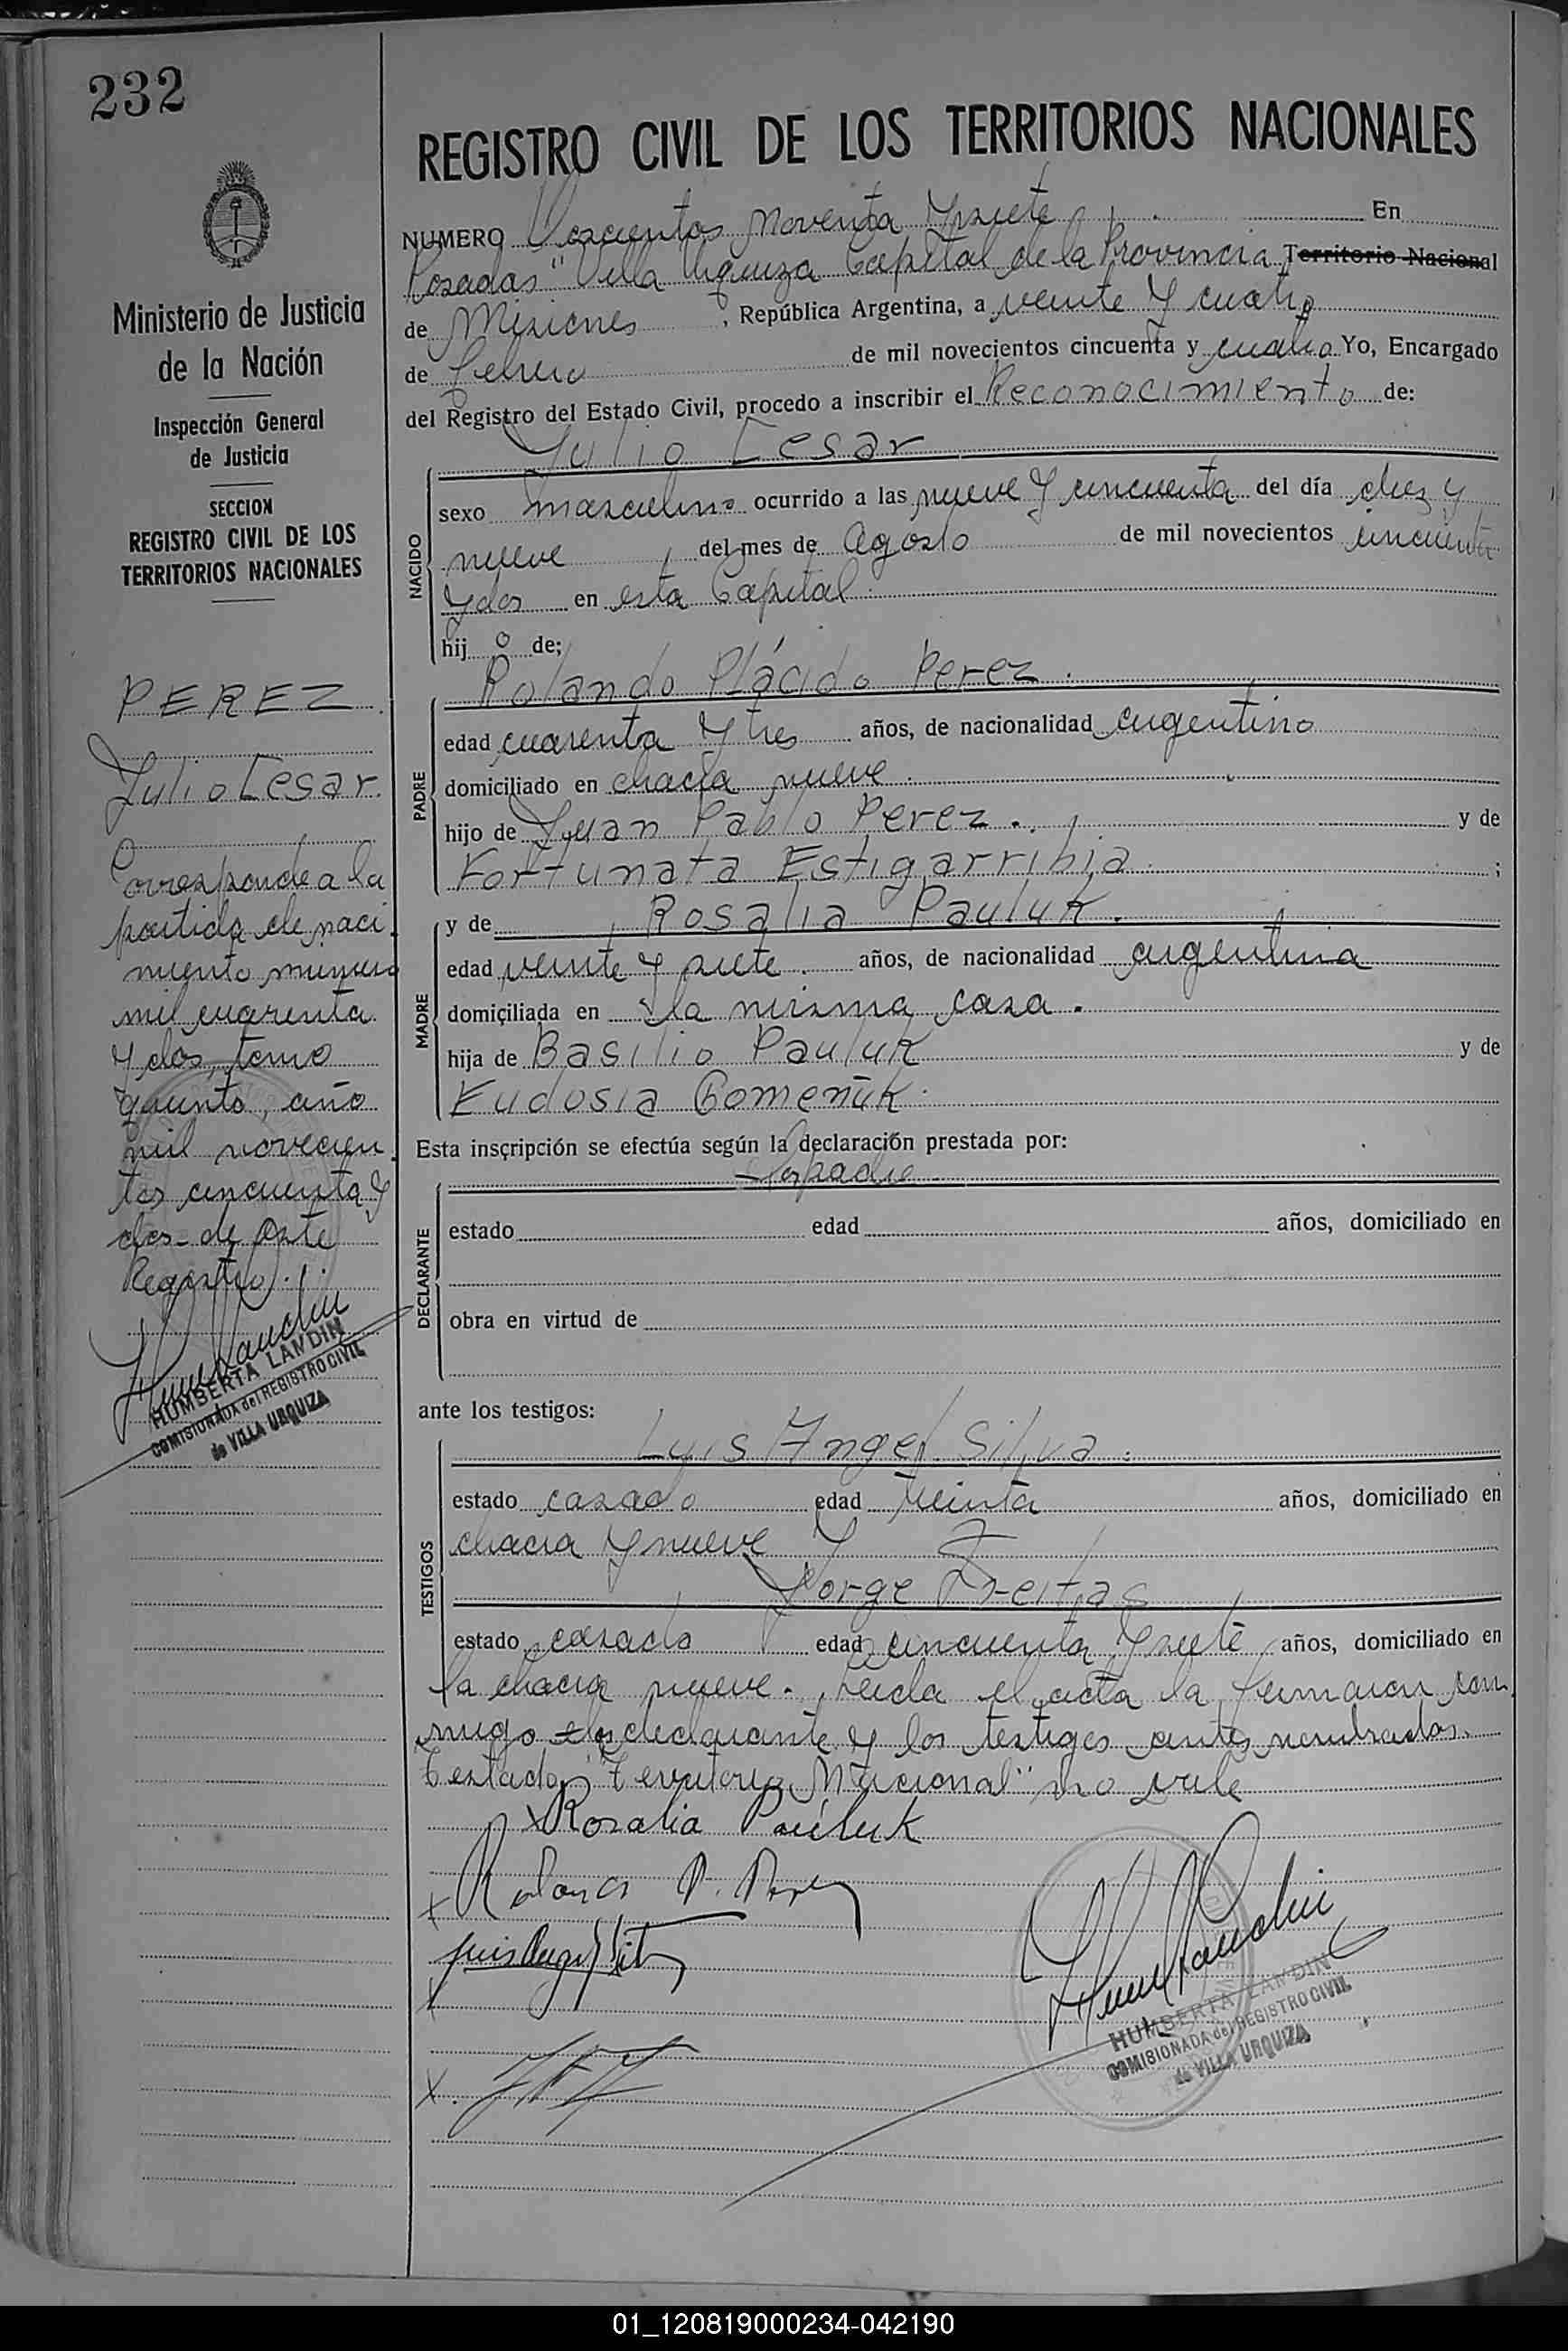 232
REGISTRO CIVIL DE LOS TERRITORIOS NACIONALES
Ministerio de Justicia
de la Nación
Inspección General
de Justicia
SECCION
REGISTRO CIVIL DE LOS
TERRITORIOS NACIONALES
PEREZ
Julio Cesar.
Corresponde a la
partida de naci
miento numero
mil cuarenta
y dos, tomo
quinto, año
mil novecien
tos cincuenta y
dos de este
Registro.
HUMBERTA LANDIN
COMISIONADA del REGISTRO CIVIL
de VILLA URQUIZA
NUMERO Doscientos Noventa y siete En
Posadas "Villa Urquiza Capital de la Provincia Territorio Nacional
de Misiones, República Argentina, a veinte y cuatro
de febrero de mil novecientos cincuenta y cuatro Yo, Encargado
del Registro del Estado Civil, procedo a inscribir el Reconocimiento de:
Julio Cesar
NACIDO
sexo masculino ocurrido a las nueve y cincuenta del día diez y
nueve del mes de Agosto de mil novecientos cincuenta
y dos en esta Capital.
hijo de:
Rolando Plácido Perez.
PADRE
edad cuarenta y tres años, de nacionalidad argentino
domiciliado en chacra nueve.
hijo de Juan Pablo Perez. y de
Fortunata Estigarribia ;
y de Rosalia Pauluk.
MADRE
edad veinte y siete. años, de nacionalidad argentina
domiciliada en la misma casa.
hija de Basilio Pauluk y de
Eudosia Gomeñuk.
Esta inscripción se efectúa según la declaración prestada por:
Los padre
DECLARANTE
estado edad años, domiciliado en
obra en virtud de
ante los testigos:
Luis Angel Silva.
TESTIGOS
estado casado edad treinta años, domiciliado en
chacra nueve y
Jorge Freitas
estado casado edad cincuenta y siete años, domiciliado en
la chacra nueve. Leida el acta la firmaron con
migo declarante y los testigos antes nombrados.
Testado "Territorio Nacional" no vale
x Rosalia Pauluk
x Rolando P. Perez
Luis Angel Silva
x
x.
HUMBERTA LANDIN
COMISIONADA del REGISTRO CIVIL
de VILLA URQUIZA
01_120819000234-042190